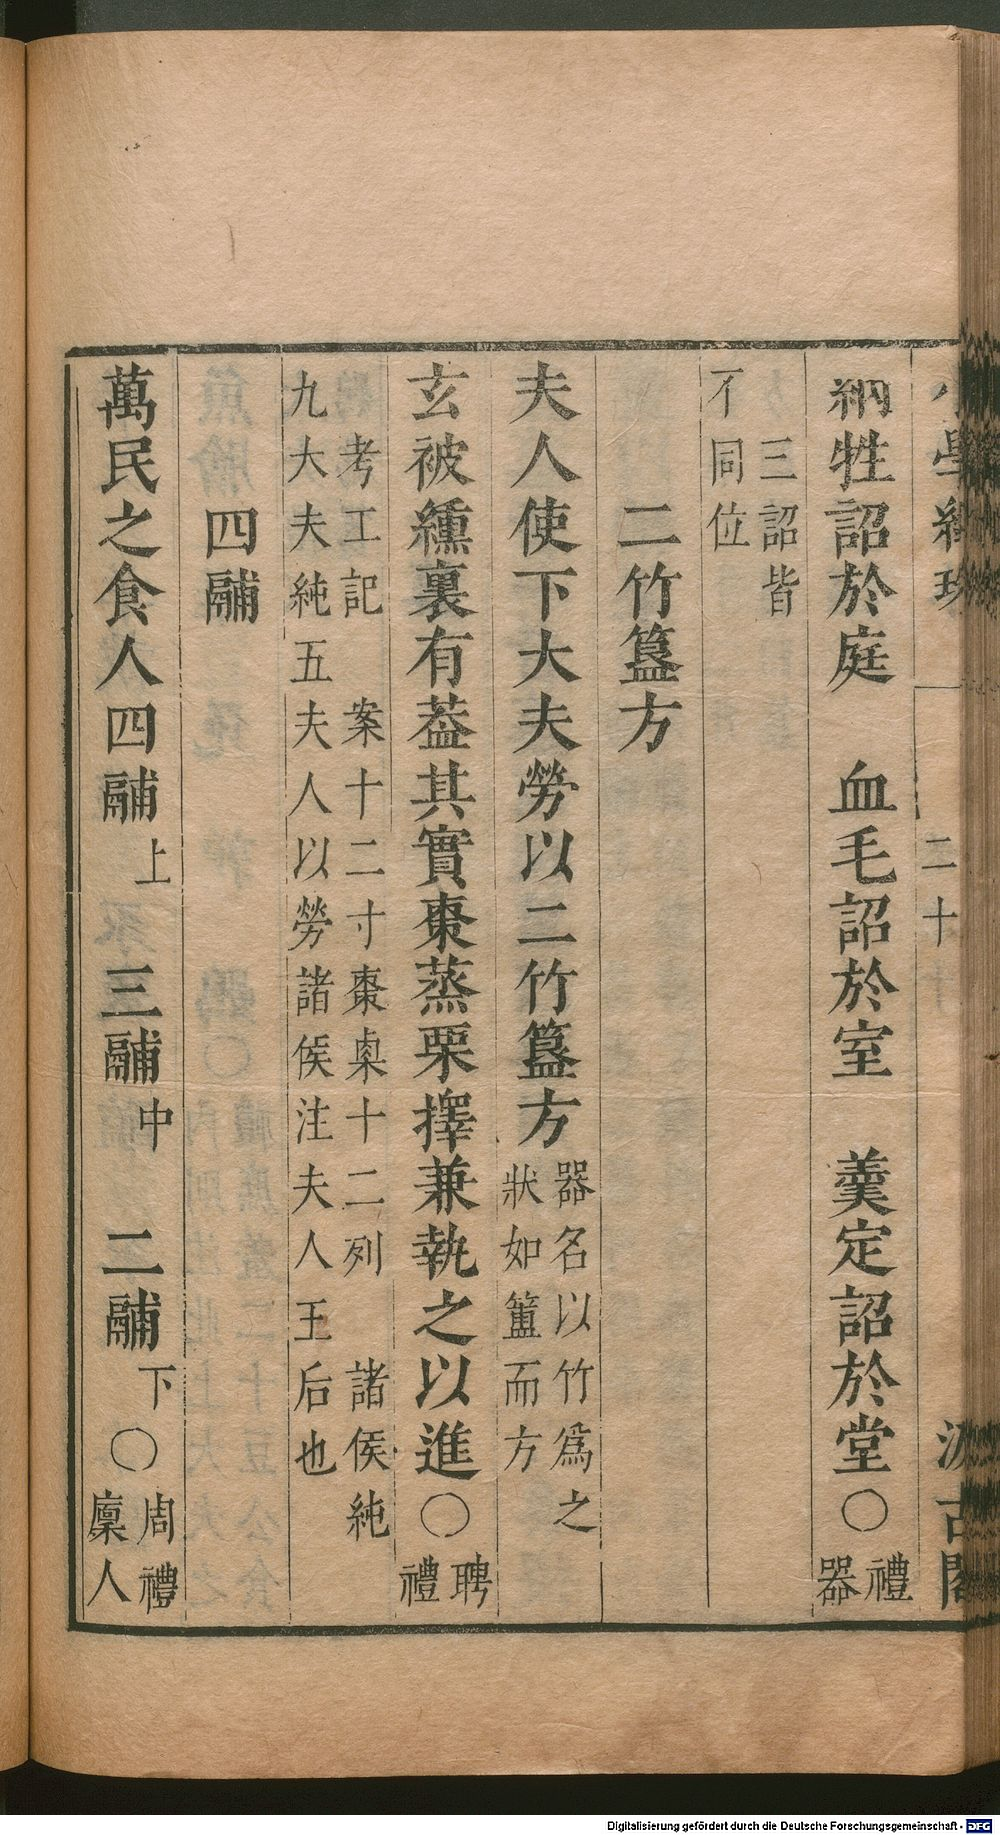 小學紺珠 二十 汲古閣
納牲詔於庭 血毛詔於室 羹定詔於堂○禮器
三詔皆
不同位
二竹簋方
夫人使下大夫勞以二竹簋方器名以竹爲之狀如簠而方
玄被纁裏有葢其實棗蒸栗擇兼執之以進○聘禮
考工記 案十二寸棗㮚十二列 諸侯純
九大夫純五夫人以勞諸侯注夫人王后也
四鬴
萬民之食人四鬴上 三鬴中 二鬴下○周禮廩人
Digitalisierung gefördert durch die Deutsche Forschungsgemeinschaft - DFG